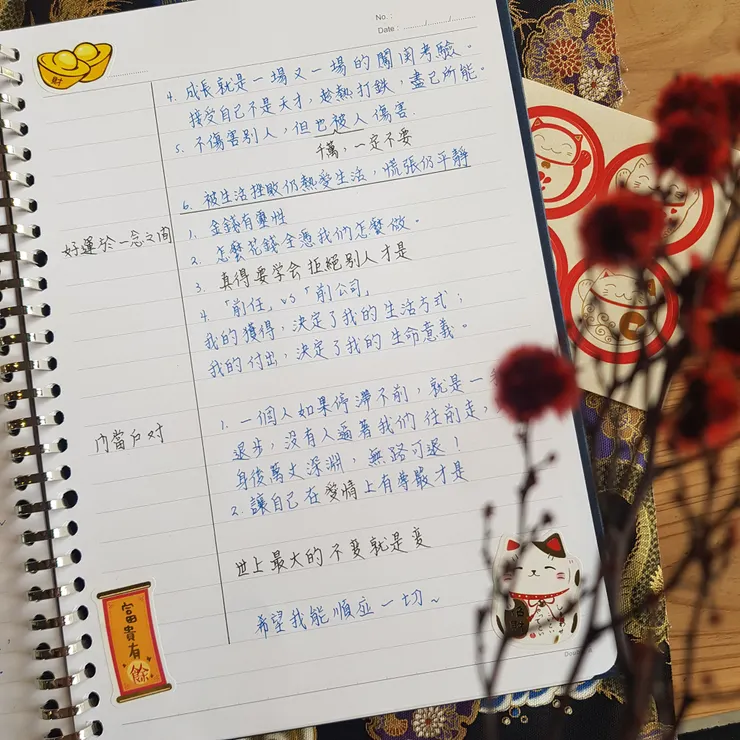 No :
Date : ......../......../........
財
4. 成長就是一場又一場的闖関考驗。
接受自己不是天才，趁熱打鉄，盡己所能。
5. 不傷害别人，但也被人傷害.
千萬，一定不要
6. 被生活挫敗仍熱愛生活，慌張仍平靜
好運於一念之間
1. 金錢有靈性
2. 怎麼花錢全憑我們怎麼做。
3. 真得要学会拒絕别人才是
4. 「前任」vs「前公司」
我的獲得，決定了我的生活方式；
我的付出，決定了我的生命意義。
门當户对
1. 一個人如果停滯不前，就是一
退步，没有人逼著我們往前走，
身後萬丈深淵，無路可退！
2. 讓自己在愛情上有尊嚴才是
世上最大的不变就是变
希望我能順应一切~
富貴有餘
招財